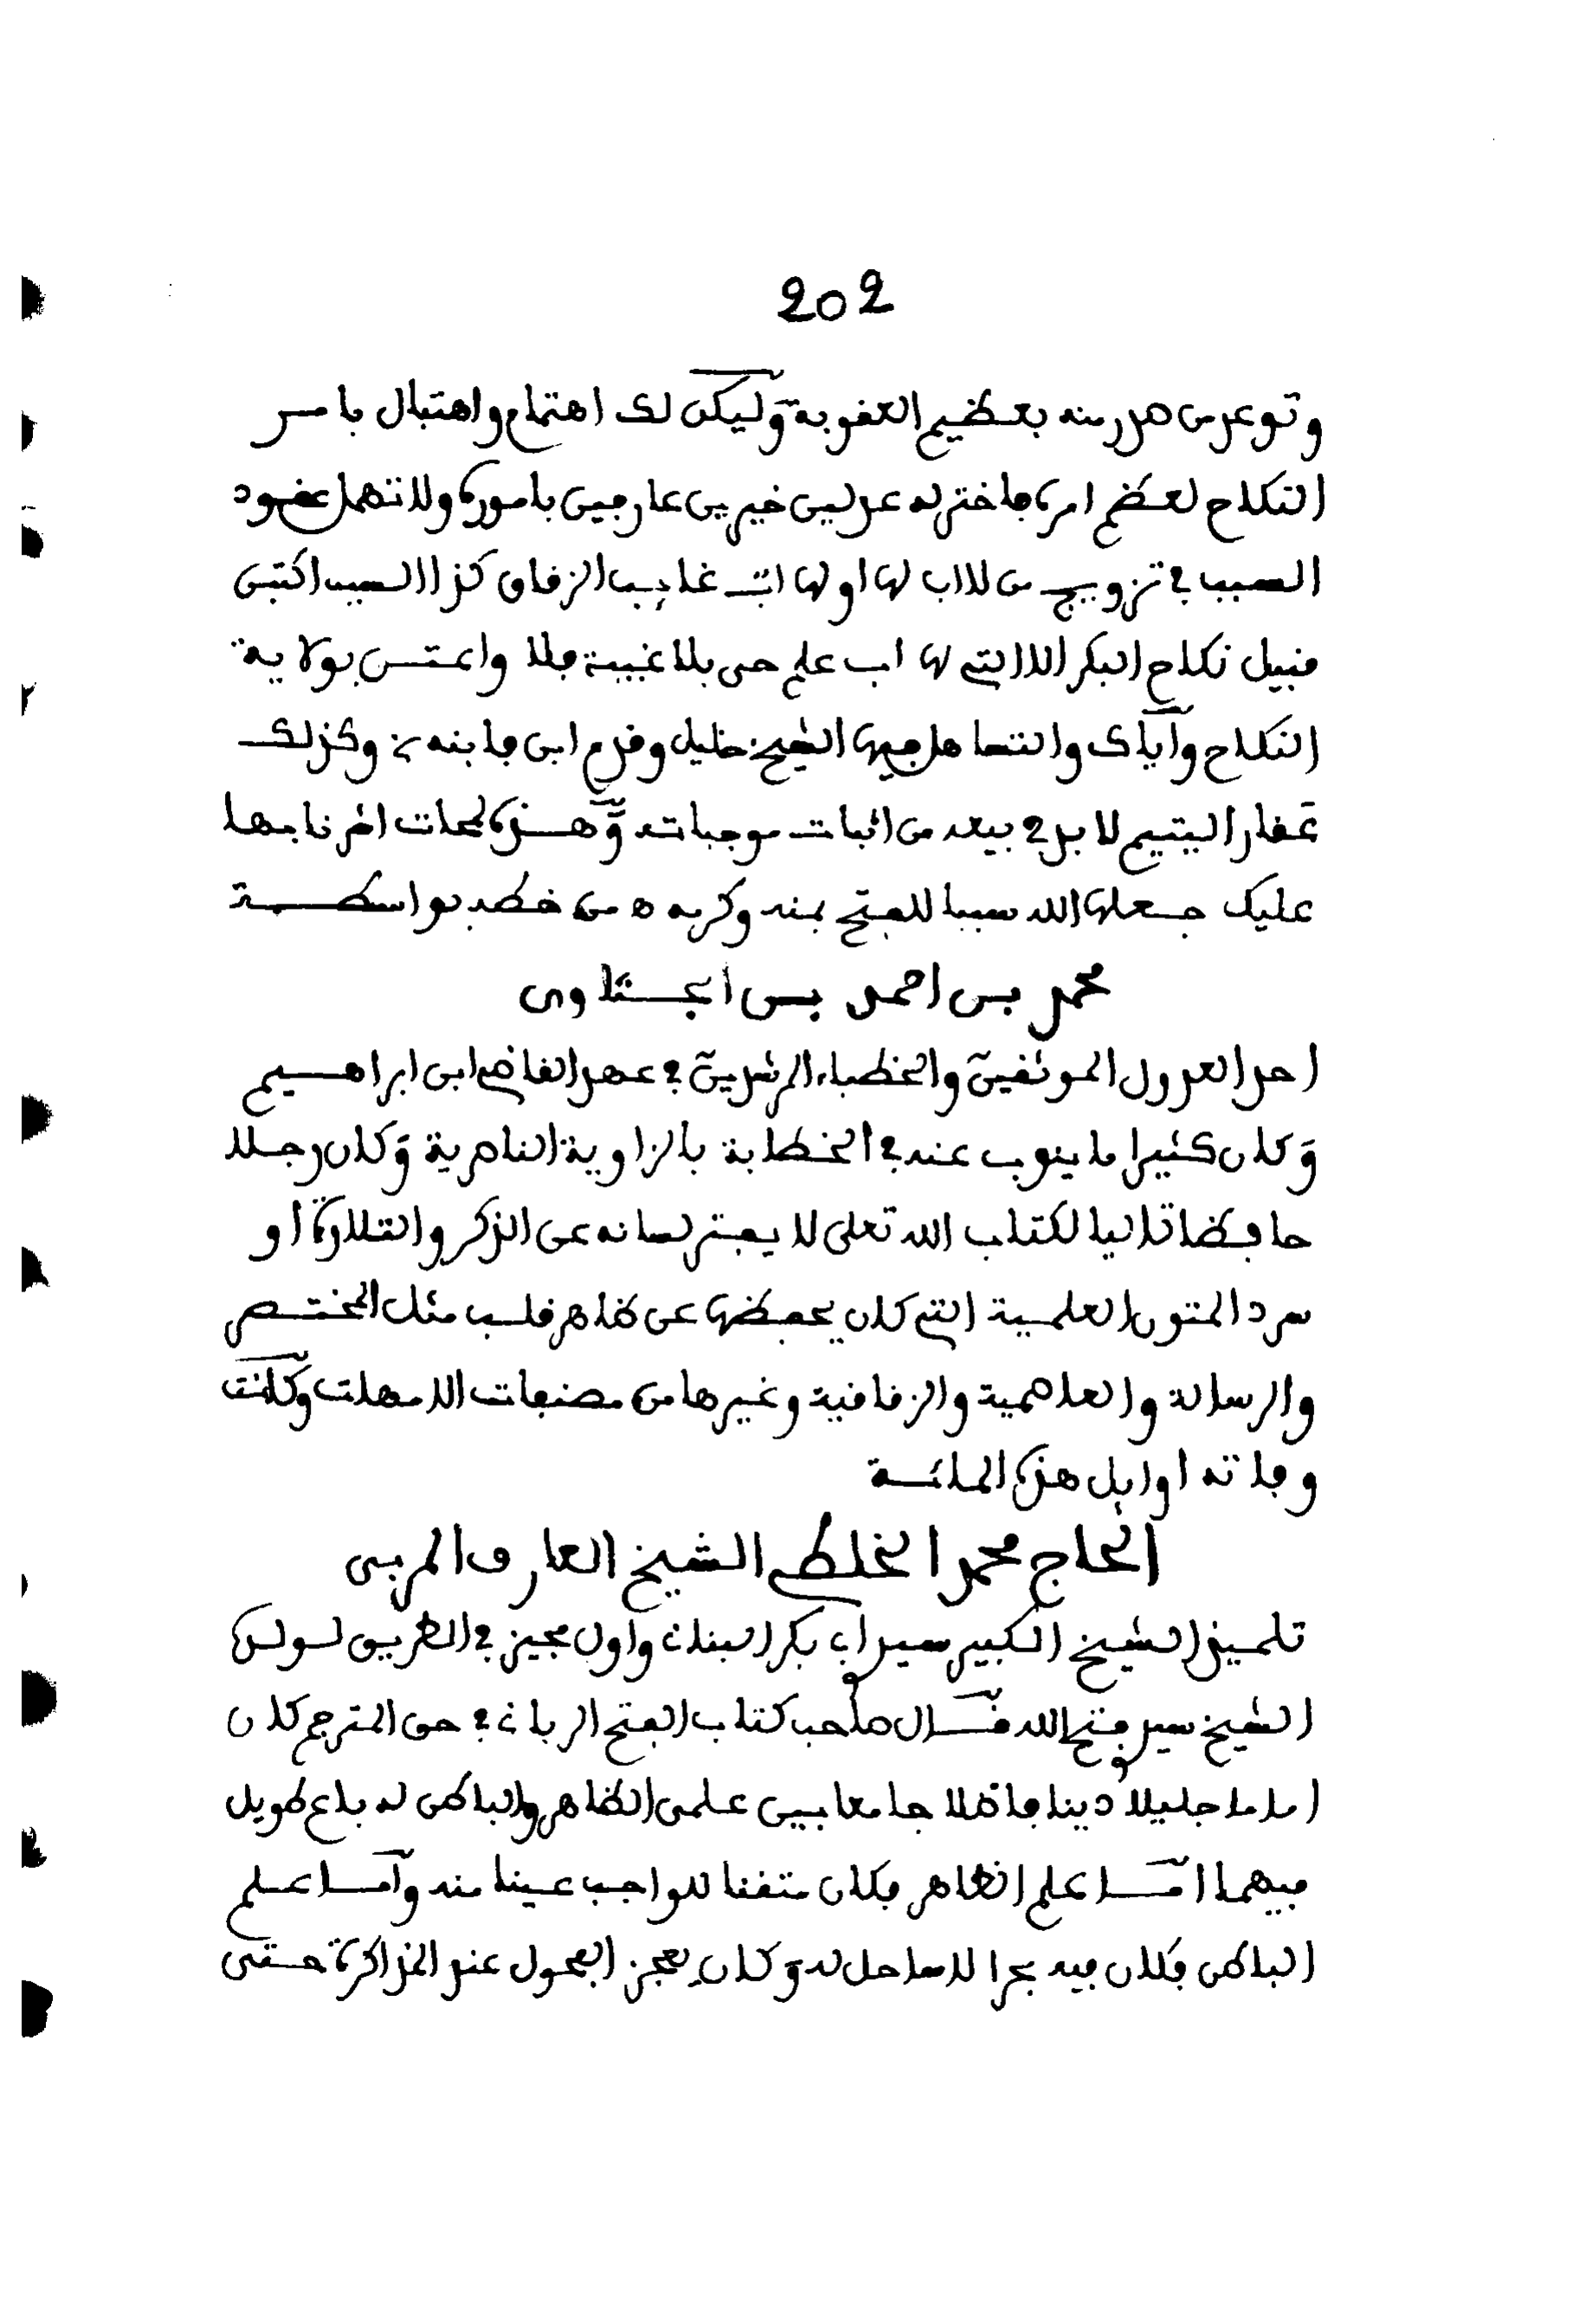 202
وتوعد من صدر منه بعظيم العقوبة وليكن لك اهتمام واهتبال بامر
النكاح لعظم امره فاختر له عدلين خيرين عارفين باموره ولا تهمل عقود
السبب في تزويج من لا اب لها او لها اب غايب الزقاق كذا السبب اكتبن
قبيل نكاح البكر الا التي لها اب علم حي بلا غيبة فلا واعتن بولاية
النكاح واياك والتساهل فيها الشيخ خليل وقدم ابن فابنه وكذلك
عقار اليتيم لا بد في بيعه من اثبات موجباته وهذه لمحات اشرنا بها
عليك جعلها الله سببا للفتح بمنه وكرمه ه من خطه بواسطة
محمد بن احمد بن
احد العدول الموثقين والخطباء المرشدين في عهد القاضي ابي ابراهيم
وكان كثيرا ما ينوب عنه في الخطابة بالزاوية الناصرية وكان رجلا
حافظا تاليا لكتاب الله تعلى لا يفتر لسانه عن الذكر والتلاوة او
سرد المتون العلمية التي كان يحفظها عن ظاهر قلب مثل المختصر
والرسالة والعاصمية والزقاقية وغيرها من مصنفات الامهات وكانت
وفاته اوايل هذه المائة
الحاج محمد الخلطي الشيخ العارف المربي
تلميذ الشيخ الكبير سيدي ابي بكر البناني واول مجيز في الطريق لولده
الشيخ سيدي فتح الله قال صاحب كتاب الفتح الرباني في حق المترجم كان
اماما جليلا دينا فاضلا جامعا بين علمي الظاهر والباطن له باع طويل
فيهما اما علم الظاهر فكان متقنا للواجب عينا منه واما علم
الباطن فكان فيه بحرا لا ساحل له وكان يعجز الفحول عند المذاكرة حتى